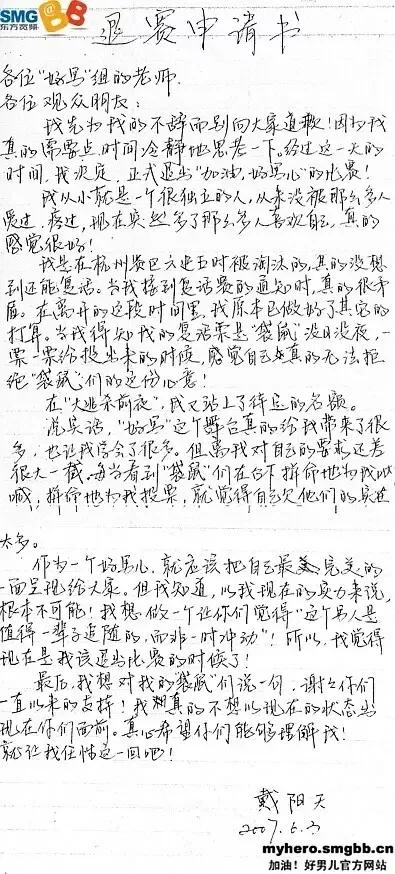 SMG
东方宽频
BB
退赛申请书
各位"好男"组的老师
各位观众朋友:
我先为我的不辞而别向大家道歉!因为我
真的需要点时间冷静地思考一下。经过这一天的
时间,我决定,正式退出"加油,好男儿"的比赛!
我从小就是一个很独立的人,从来没被那么多人
爱过,疼过,现在突然多了那么多人喜欢自己,真的
感觉很好!
我是在杭州赛区六进五时被淘汰的,真的没想
到还能复活。当我接到复活赛的通知时,真的很矛
盾。在离开的这段时间里,我原本已做好了其它的
打算。当我得知我的复活票是"袋鼠"没日没夜,一
票一票给投出来的时候,感觉自己真的无法拒
绝"袋鼠"们的这份心意!
在"大逃杀前夜",我又站上了待定的名额。
说实话,"好男"这个舞台真的给我带来了很
多,也让我学会了很多。但离我对自己的要求还差
很大一截,每当看到"袋鼠"们在台下拼命地为我呐
喊,拼命地为我投票,就觉得自己欠他们的实在
太多。
作为一个好男儿,就应该把自己最美完美的
一面呈现给大家。但我知道,以我现在的实力来说,
根本不可能!我想做一个让你们觉得"这个男人是
值得一辈子追随的,而非一时冲动"!所以,我觉得
现在是我该退出比赛的时候了!
最后,我想对我的袋鼠们说一句,谢谢你们
一直以来的支持!我真的不想以现在的状态出
现在你们面前。真心希望你们能够理解我!
就让我任性这一回吧!
戴阳天
2007.6.3
myhero.smgbb.cn
加油!好男儿官方网站